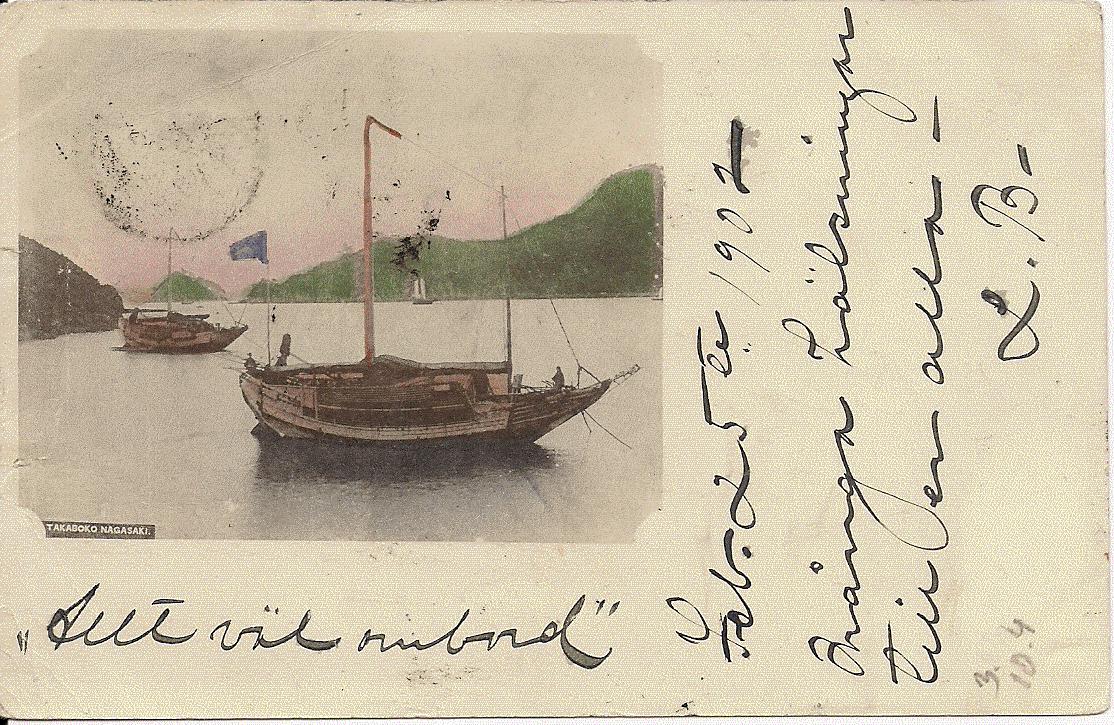 TAKABOKO NAGASAKI.
„Allt väl ombord”
Feb. 25 te 1902
Många hälsningar
till er alla –
L. B–
3.
10.4